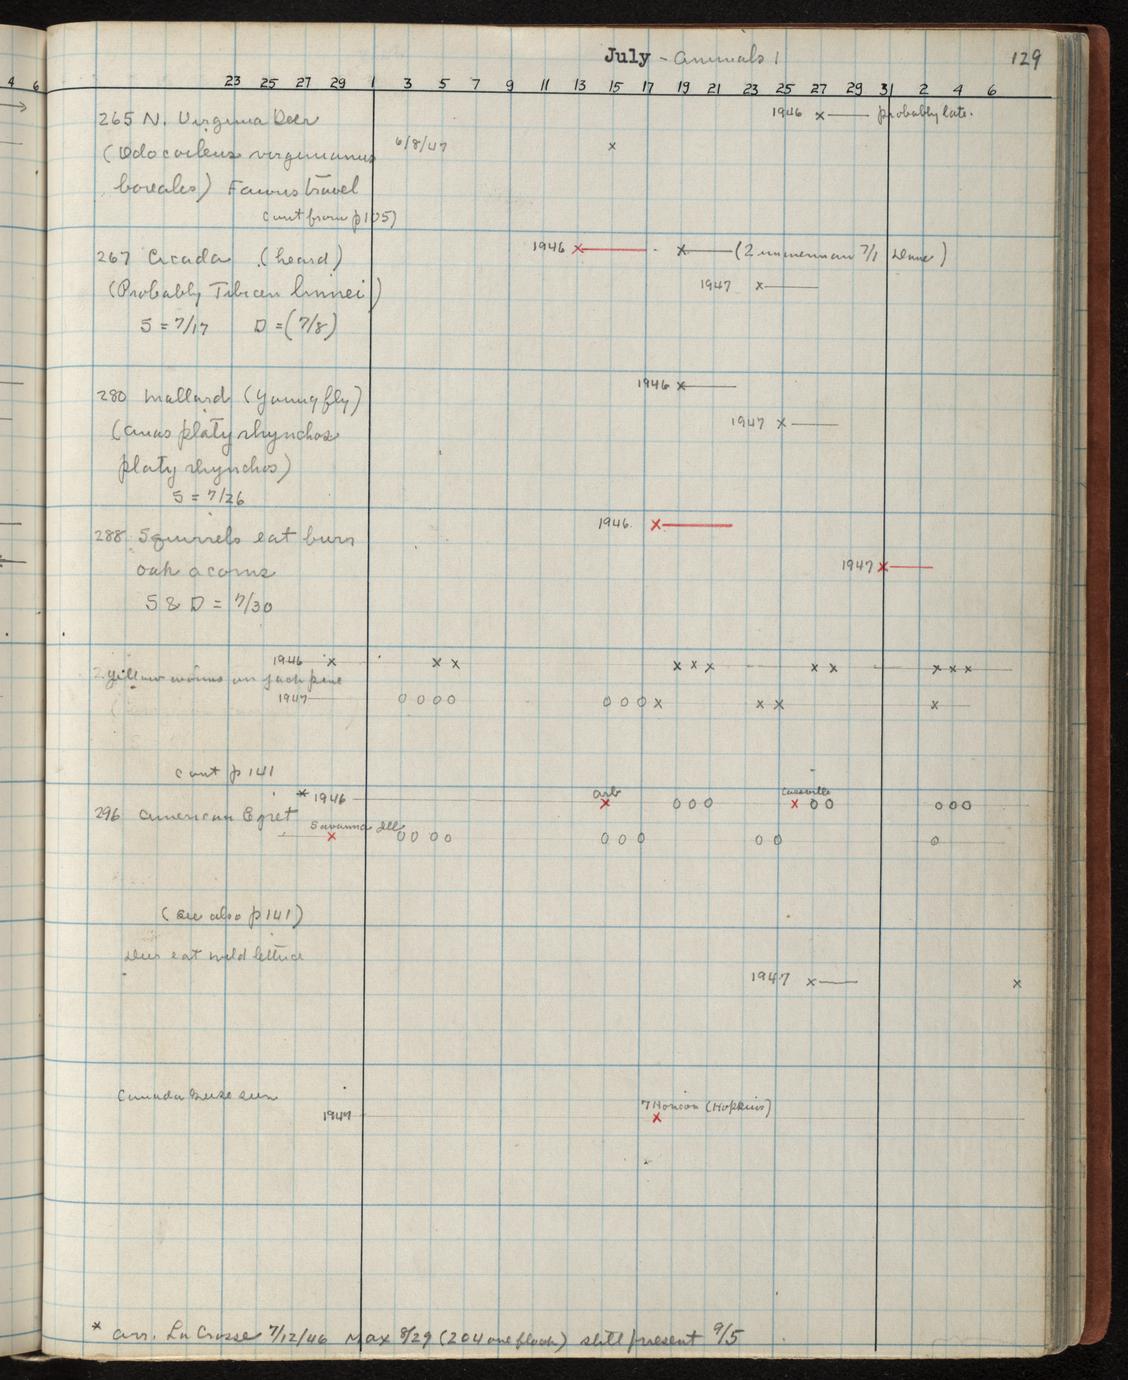 4 6
July - Animals 1 129
23 25 27 29 1 3 5 7 9 11 13 15 17 19 21 23 25 27 29 31 2 4 6
265 N. Virginia Deer 1946 x probably late.
(Odocoileus virginianus 6/8/47 x
boreales) Fawns travel
(cont from p 105)
267 Cicada (heard) 1946 x x (Zimmerman 7/1 Dane)
(Probably Tibicen linnei) 1947 x
S = 7/17 D = (7/8)
280 Mallard (Young fly) 1946 x
(Anas platyrhynchos 1947 x
platyrhynchos)
S = 7/26
288 Squirrels eat burr 1946. x
oak acorns 1947 x
S & D = 7/30
1946 x x x x x x x x x x x
yellow worms on jack pine
1947 0 0 0 0 0 0 0 x x x x
cont p 141
* 1946 Arb x 0 0 0 Cassville x 0 0 0 0 0
296 American Egret
Savanna Ill x 0 0 0 0 0 0 0 0 0 0
(see also p 141)
Deer eat wild lettuce
1947 x x
Canada Geese seen
1947 7 Horicon (Hopkins) x
* arr. La Crosse 7/12/46 Max 8/29 (204 one flock) still present 9/5